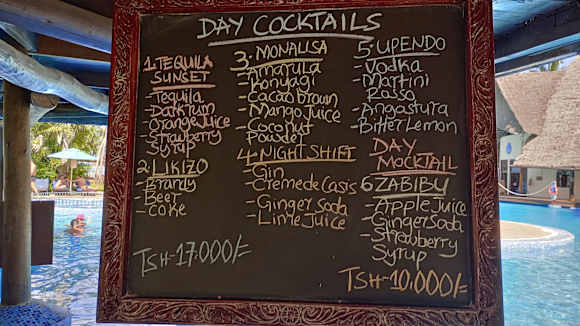 DAY COCKTAILS
1. TEQUILA
SUNSET
- Tequila
- Dark rum
- Orange Juice
- Strawberry
Syrup
2. LIKIZO
- Brandy
- Beer
- Coke
TSH-17.000/=
3. MONALISA
- Amarula
- Konyagi
- Cacao brown
- Mango Juice
- Coconut
Powde
4. NIGHT SHIFT
- Gin
- Creme de Casis
- Ginger Soda
- Lime Juice
5. UPENDO
- Vodka
- Martini
Rosso
- Angastura
- Bitter Lemon
DAY
MOCKTAIL
6 ZABIBU
- Apple Juice
- Ginger Soda
- Strawberry
Syrup
TSH-10.000/=